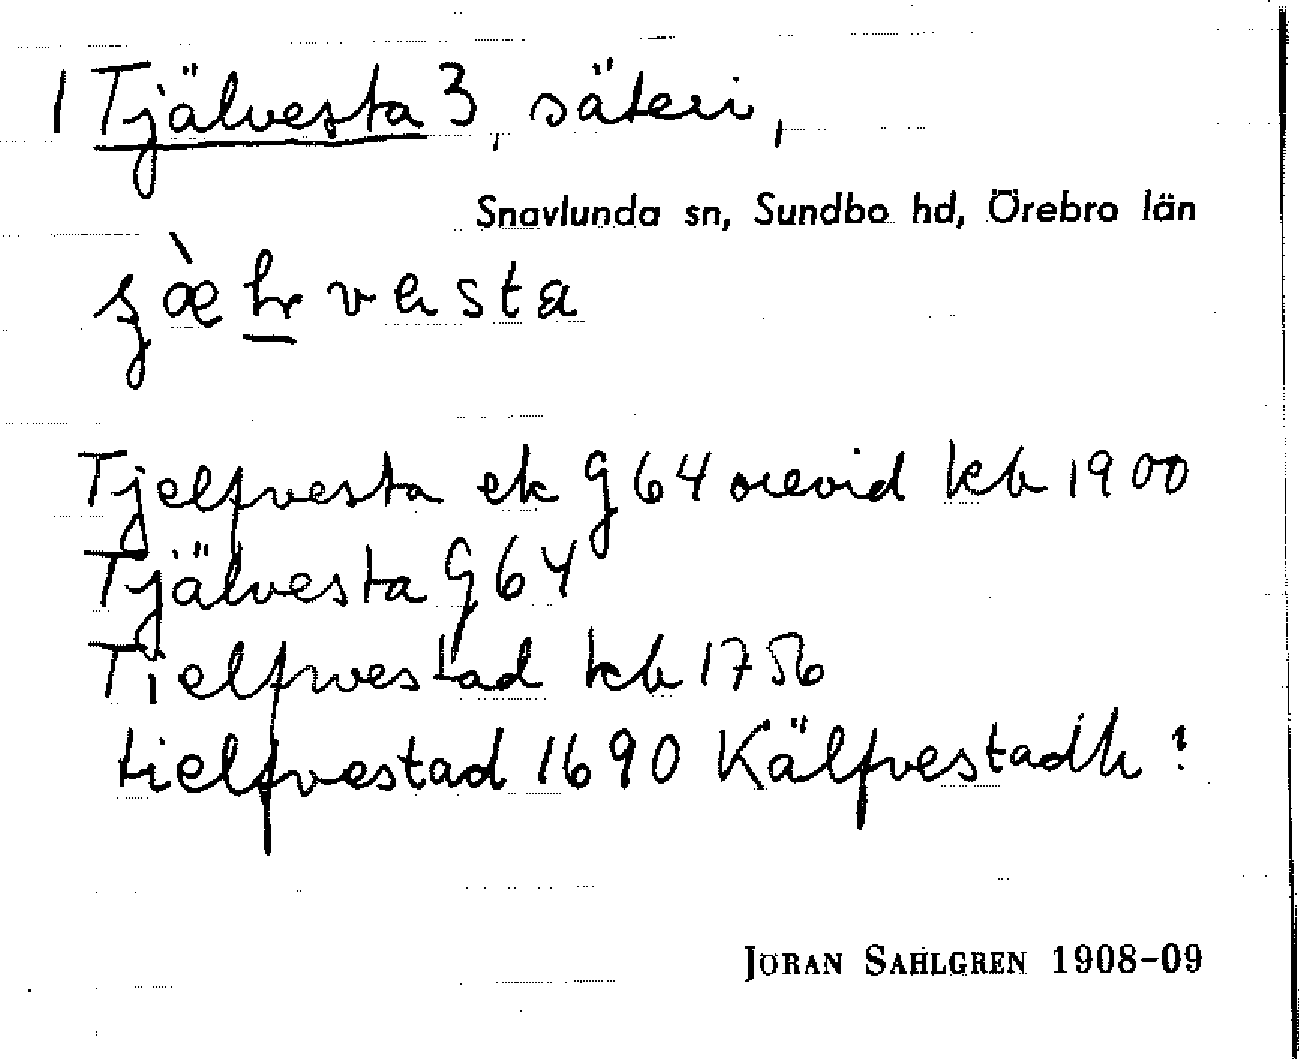 1 Tjälvesta 3, säteri,
Snavlunda sn, Sundbo hd, Örebro län
Tjelfvesta ek G64 orevid kb 1900
Tjälvesta G64
Tielfwestad kb 1756
tielfvestad 1690 Kälfvestadh ?
JÖRAN SAHLGREN 1908-09